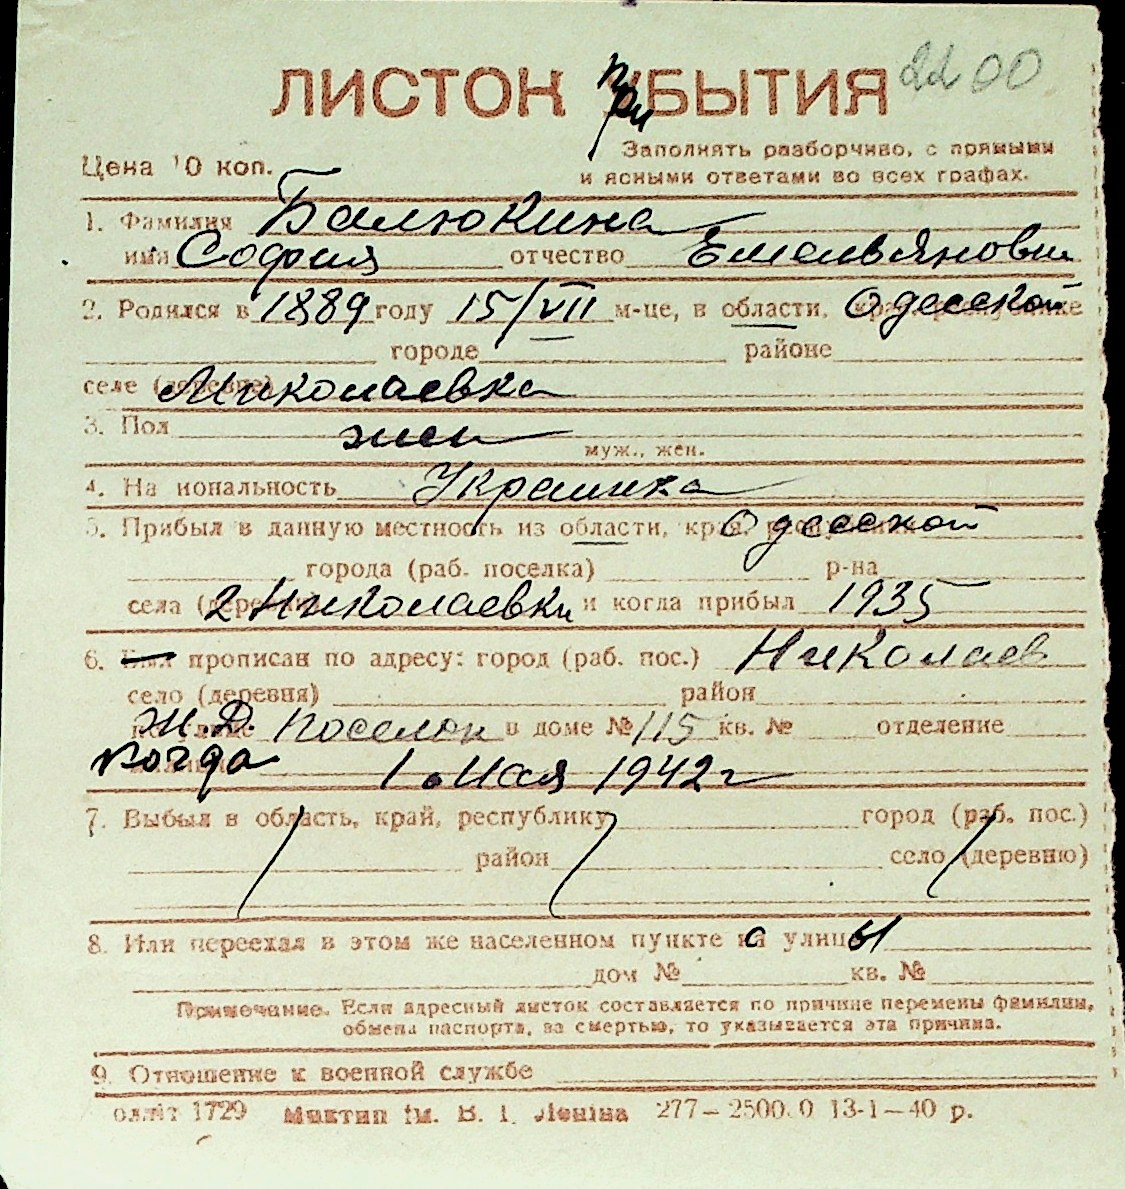 ЛИСТОК ПриБЫТИЯ 2200
Цена 10 коп.
Заполнять разборчиво, с прямыми
и ясными ответами во всех графах.
1. Фамилия Балюкина
имя София отчество Емельяновна
2. Родился в 1889 году 15/VII м-це, в области, Одесской
городе районе
селе (деревне) Николаевка
3. Пол жен
муж., жен.
4. На иональность Украинка
5. Прибыл в данную местность из области, края, Одесской
города (раб. поселка) р-на
села Николаевки и когда прибыл 1935
6. прописан по адресу: город (раб. пос.) Николаев
село (деревня) район
Ж. Д. поселок в доме № 115 кв. № отделение
когда 1 мая 1942 г
7. Выбыл в область, край, республику город (раб. пос.)
район село (деревню)
8. Или переехал в этом же населенном пункте с улицы
дом № кв. №
Примечание. Если адресный листок составляется по причине перемены фамилии,
обмена паспорта, за смертью, то указывается эта причина.
9. Отношение к военной службе
1729 Миктип ім. В. І. Леніна 277—2500.0 13-1—40 р.